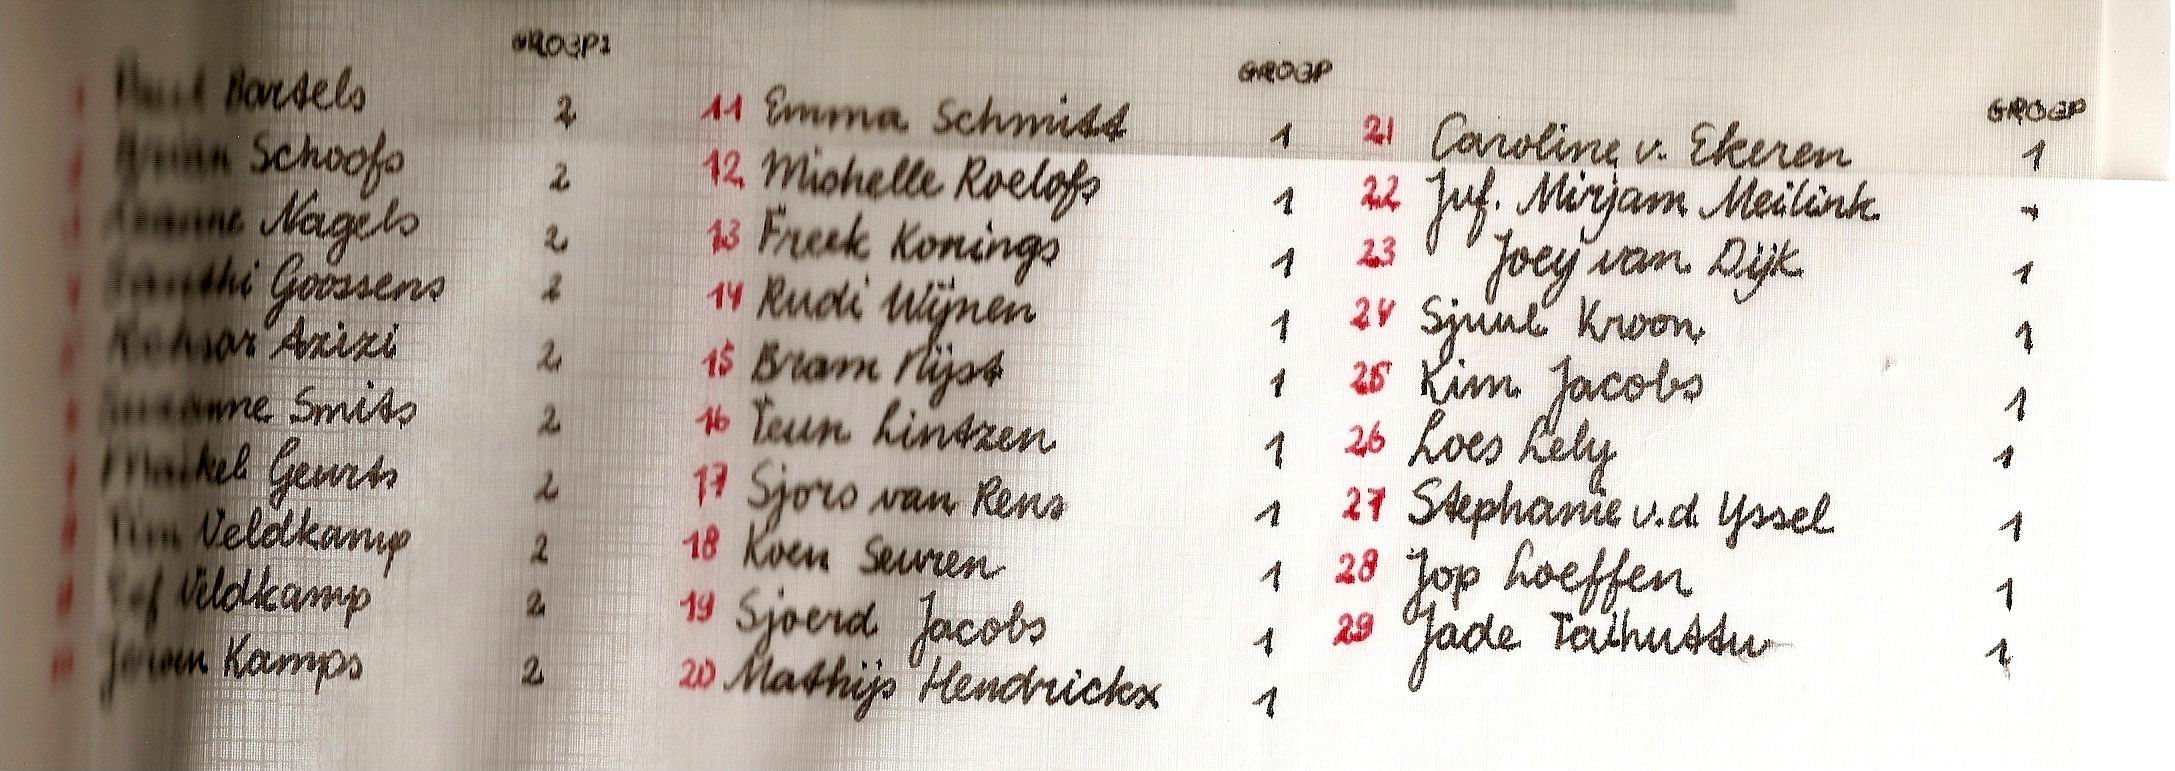 GROEP
Bartels 2
Schoofs 2
Nagels 2
Goossens 2
Azizi 2
Smits 2
Maikel Geurts 2
Tim Veldkamp 2
Veldkamp 2
Jeroen Kamps 2
GROEP
11 Emma Schmitt 1
12 Michelle Roelofs 1
13 Freek Konings 1
14 Rudi Wijnen 1
15 Bram Nijst 1
16 Teun Lintzen 1
17 Sjors van Rens 1
18 Koen Seuren 1
19 Sjoerd Jacobs 1
20 Mathijs Hendrickx 1
GROEP
21 Caroline v. Ekeren 1
22 Juf. Mirjam Meilink -
23 Joey van Dijk 1
24 Sjuul Kroon 1
25 Kim Jacobs 1
26 Loes Lely 1
27 Stephanie v.d. Yssel 1
28 Jop Loeffen 1
29 Jade Taihuttu 1